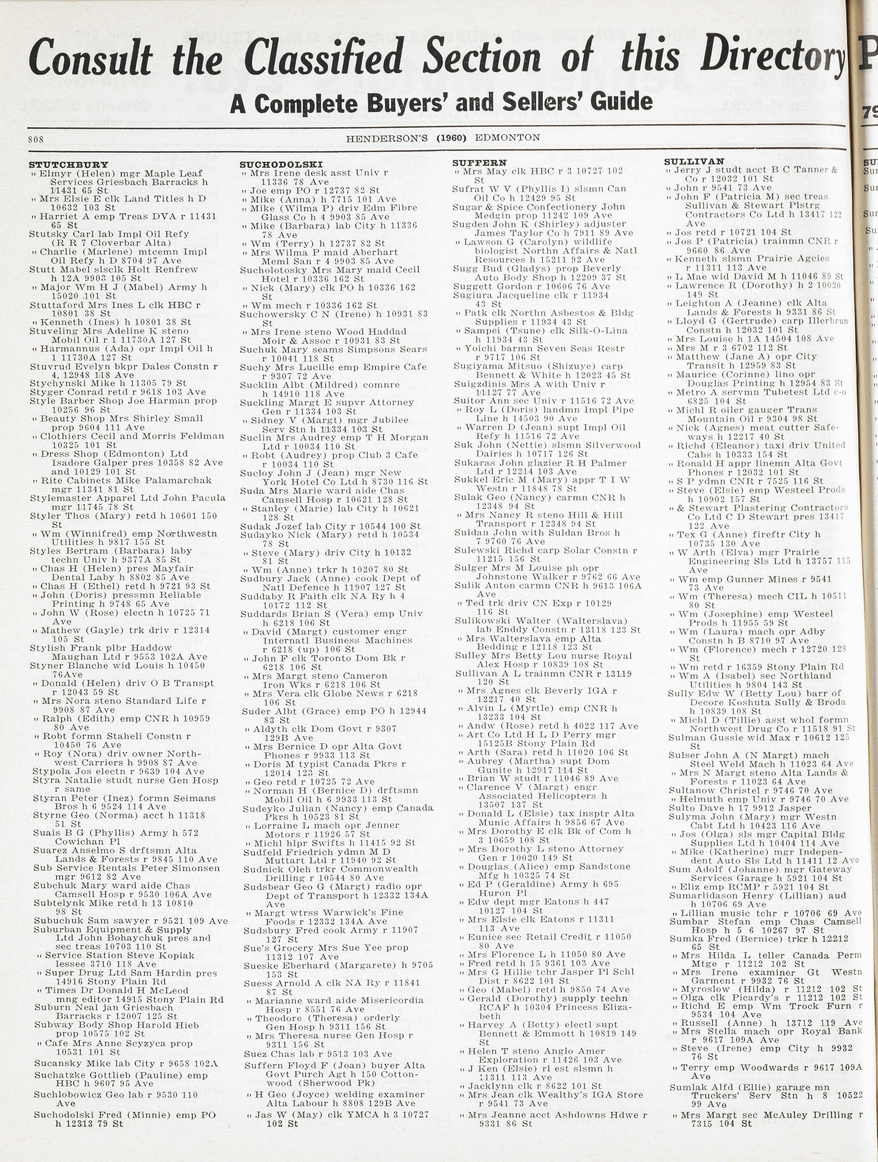 Consult the Classified Section of this Directory
A Complete Buyers' and Sellers' Guide
808
HENDERSON'S (1960) EDMONTON
STUTCHBURY
" Elmyr (Helen) mgr Maple Leaf
Services Griesbach Barracks h
11431 65 St
" Mrs Elsie E clk Land Titles h D
10632 103 St
" Harriet A emp Treas DVA r 11431
65 St
Stutsky Carl lab Impl Oil Refy
(R R 7 Cloverbar Alta)
" Charlie (Marlene) mtcemn Impl
Oil Refy h D 8704 97 Ave
Stutt Mabel slsclk Holt Renfrew
h 12A 9903 105 St
" Major Wm H J (Mabel) Army h
15020 101 St
Stuttaford Mrs Ines L clk HBC r
10801 38 St
" Kenneth (Ines) h 10801 38 St
Stuveling Mrs Adeline K steno
Mobil Oil r 1 11730A 127 St
" Harmannus (Ada) opr Impl Oil h
1 11730A 127 St
Stuvrud Evelyn bkpr Dales Constn r
4, 12948 118 Ave
Stychynski Mike h 11305 79 St
Styger Conrad retd r 9618 103 Ave
Style Barber Shop Joe Harman prop
10256 96 St
" Beauty Shop Mrs Shirley Small
prop 9604 111 Ave
" Clothiers Cecil and Morris Feldman
10325 101 St
" Dress Shop (Edmonton) Ltd
Isadore Galper pres 10358 82 Ave
and 10129 101 St
" Rite Cabinets Mike Palamarchak
mgr 11341 81 St
Stylemaster Apparel Ltd John Pacula
mgr 11745 78 St
Styler Thos (Mary) retd h 10601 150
St
" Wm (Winnifred) emp Northwestn
Utilities h 9817 155 St
Styles Bertram (Barbara) laby
techn Univ h 9377A 85 St
" Chas H (Helen) pres Mayfair
Dental Laby h 8802 85 Ave
" Chas H (Ethel) retd h 9721 93 St
" John (Doris) pressmn Reliable
Printing h 9748 65 Ave
" John W (Rose) electn h 10725 71
Ave
" Mathew (Gayle) trk driv r 12314
105 St
Stylish Frank plbr Haddow
Maughan Ltd r 9553 102A Ave
Styner Blanche wid Louis h 10450
76Ave
" Donald (Helen) driv O B Transpt
r 12043 59 St
" Mrs Nora steno Standard Life r
9908 87 Ave
" Ralph (Edith) emp CNR h 10959
80 Ave
" Robt formn Staheli Constn r
10450 76 Ave
" Roy (Nora) driv owner North-
west Carriers h 9908 87 Ave
Stypola Jos electn r 9639 104 Ave
Styra Natalie studt nurse Gen Hosp
r same
Styran Peter (Inez) formn Seimans
Bros h 6 9524 114 Ave
Styrne Geo (Norma) acct h 11318
51 St
Suais B G (Phyllis) Army h 572
Cowichan Pl
Suarez Anselmo S drftsmn Alta
Lands & Forests r 9845 110 Ave
Sub Service Rentals Peter Simonsen
mgr 9612 82 Ave
Subchuk Mary ward aide Chas
Camsell Hosp r 9530 106A Ave
Subtelynk Mike retd h 13 10810
98 St
Subuchuk Sam sawyer r 9521 109 Ave
Suburban Equipment & Supply
Ltd John Bohaychuk pres and
sec treas 10703 110 St
" Service Station Steve Kopiak
lessee 3710 118 Ave
" Super Drug Ltd Sam Hardin pres
14916 Stony Plain Rd
" Times Dr Donald H McLeod
mng editor 14915 Stony Plain Rd
Suburn Neal jan Griesbach
Barracks r 12007 125 St
Subway Body Shop Harold Hieb
prop 10575 102 St
" Cafe Mrs Anne Scyzyca prop
10531 101 St
Sucansky Mike lab City r 9658 102A
Suchatzke Gottlieb (Pauline) emp
HBC h 9607 95 Ave
Suchlobowicz Geo lab r 9530 110
Ave
Suchodolski Fred (Minnie) emp PO
h 12313 79 St
SUCHODOLSKI
" Mrs Irene desk asst Univ r
11336 78 Ave
" Joe emp PO r 12737 82 St
" Mike (Anna) h 7715 101 Ave
" Mike (Wilma P) driv Edm Fibre
Glass Co h 4 9903 85 Ave
" Mike (Barbara) lab City h 11336
78 Ave
" Wm (Terry) h 12737 82 St
" Mrs Wilma P maid Aberhart
Meml San r 4 9903 85 Ave
Sucholotosky Mrs Mary maid Cecil
Hotel r 10336 162 St
" Nick (Mary) clk PO h 10336 162
St
" Wm mech r 10336 162 St
Suchowersky C N (Irene) h 10931 83
St
" Mrs Irene steno Wood Haddad
Moir & Assoc r 10931 83 St
Suchuk Mary seams Simpsons Sears
r 10041 118 St
Suchy Mrs Lucille emp Empire Cafe
r 9307 72 Ave
Sucklin Albt (Mildred) comnre
h 14910 118 Ave
Suckling Margt E supvr Attorney
Gen r 11334 103 St
" Sidney V (Margt) mgr Jubilee
Serv Stn h 11334 103 St
Suclin Mrs Audrey emp T H Morgan
Ltd r 10034 110 St
" Robt (Audrey) prop Club 3 Cafe
r 10034 110 St
Sucloy John J (Jean) mgr New
York Hotel Co Ltd h 8730 116 St
Suda Mrs Marie ward aide Chas
Camsell Hosp r 10621 128 St
" Stanley (Marie) lab City h 10621
128 St
Sudak Jozef lab City r 10544 100 St
Sudayko Nick (Mary) retd h 10534
78 St
" Steve (Mary) driv City h 10132
81 St
" Wm (Anne) trkr h 10207 80 St
Sudbury Jack (Anne) cook Dept of
Natl Defence h 11907 127 St
Suddaby R Faith clk NA Ry h 4
10172 112 St
Suddards Brian S (Vera) emp Univ
h 6218 106 St
" David (Margt) customer engr
Internatl Business Machines
r 6218 (up) 106 St
" John F clk Toronto Dom Bk r
6218 106 St
" Mrs Margt steno Cameron
Iron Wks r 6218 106 St
" Mrs Vera clk Globe News r 6218
106 St
Suder Albt (Grace) emp PO h 12944
83 St
" Aldyth clk Dom Govt r 9307
129B Ave
" Mrs Bernice D opr Alta Govt
Phones r 9933 113 St
" Doris M typist Canada Pkrs r
12014 123 St
" Geo retd r 10725 72 Ave
" Norman H (Bernice D) drftsmn
Mobil Oil h 6 9933 113 St
Sudeyko Julian (Nancy) emp Canada
Pkrs h 10523 81 St
" Lorraine L mach opr Jenner
Motors r 11926 57 St
" Michl hlpr Swifts h 11415 92 St
Sudfeld Friedrich ydmn M D
Muttart Ltd r 11940 92 St
Sudnick Oleh trkr Commonwealth
Drilling r 10544 80 Ave
Sudsbear Geo G (Margt) radio opr
Dept of Transport h 12332 134A
Ave
" Margt wtrss Warwick's Fine
Foods r 12332 134A Ave
Sudsbury Fred cook Army r 11907
127 St
Sue's Grocery Mrs Sue Yee prop
11312 107 Ave
Sueske Eberhard (Margarete) h 9705
153 St
Suess Arnold A clk NA Ry r 11841
87 St
" Marianne ward aide Misericordia
Hosp r 8551 76 Ave
" Theodore (Theresa) orderly
Gen Hosp h 9311 156 St
" Mrs Theresa nurse Gen Hosp r
9311 156 St
Suez Chas lab r 9513 103 Ave
Suffern Floyd F (Joan) buyer Alta
Govt Purch Agt h 150 Cotton-
wood (Sherwood Pk)
" H Geo (Joyce) welding examiner
Alta Labour h 8808 129B Ave
" Jas W (May) clk YMCA h 3 10727
102 St
SUFFERN
" Mrs May clk HBC r 3 10727 102
St
Sufrat W V (Phyllis I) slsmn Can
Oil Co h 12429 95 St
Sugar & Spice Confectionery John
Medgin prop 11242 109 Ave
Sugden John K (Shirley) adjuster
James Taylor Co h 7911 89 Ave
" Lawson G (Carolyn) wildlife
biologist Northn Affairs & Natl
Resources h 15211 92 Ave
Sugg Bud (Gladys) prop Beverly
Auto Body Shop h 12209 37 St
Suggett Gordon r 10606 76 Ave
Sugiura Jacqueline clk r 11934
43 St
" Patk clk Northn Asbestos & Bldg
Supplies r 11934 43 St
" Sampei (Tsune) clk Silk-O-Lina
h 11934 43 St
" Yoichi barmn Seven Seas Restr
r 9717 106 St
Sugiyama Mitsuo (Shizuye) carp
Bennett & White h 12023 45 St
Suigzdinis Mrs A with Univ r
11127 77 Ave
Suitor Ann sec Univ r 11516 72 Ave
" Roy L (Doris) landmn Impl Pipe
Line h 14503 90 Ave
" Warren D (Jean) supt Impl Oil
Refy h 11516 72 Ave
Suk John (Nettie) slsmn Silverwood
Dairies h 10717 126 St
Sukaras John glazier R H Palmer
Ltd r 12214 103 Ave
Sukkel Eric M (Mary) appr T I W
Westn r 11848 78 St
Sulak Geo (Nancy) carmn CNR h
12348 94 St
" Mrs Nancy R steno Hill & Hill
Transport r 12348 94 St
Suldan John with Suldan Bros h
7 9760 76 Ave
Sulewski Richd carp Solar Constn r
11215 156 St
Sulger Mrs M Louise ph opr
Johnstone Walker r 9762 66 Ave
Sulik Anton carmn CNR h 9613 106A
Ave
" Ted trk driv CN Exp r 10129
116 St
Sulikowski Walter (Walterslava)
lab Enddy Constn r 12118 123 St
" Mrs Walterslava emp Alta
Bedding r 12118 123 St
Sulley Mrs Betty Lou nurse Royal
Alex Hosp r 10839 108 St
Sullivan A L trainmn CNR r 13119
120 St
" Mrs Agnes clk Beverly IGA r
12217 40 St
" Alvin L (Myrtle) emp CNR h
13233 104 St
" Andw (Rose) retd h 4022 117 Ave
" Art Co Ltd H L D Perry mgr
15125B Stony Plain Rd
" Arth (Sara) retd h 11020 106 St
" Aubrey (Martha) supt Dom
Gunite h 12917 114 St
" Brian W studt r 11046 89 St
" Clarence V (Margt) engr
Associated Helicopters h
13507 137 St
" Donald L (Elsie) tax insptr Alta
Munic Affairs h 9856 67 Ave
" Mrs Dorothy E clk Bk of Com h
3 10659 108 St
" Mrs Dorothy L steno Attorney
Gen r 10020 149 St
" Douglas (Alice) emp Sandstone
Mfg h 10325 74 St
" Ed P (Geraldine) Army h 695
Huron Pl
" Edw dept mgr Eatons h 447
10127 104 St
" Mrs Elsie clk Eatons r 11311
113 Ave
" Eunice sec Retail Credit r 11050
80 Ave
" Mrs Florence L h 11050 80 Ave
" Fred retd h 15 9361 103 Ave
" Mrs G Hillie tchr Jasper Pl Schl
Dist r 8622 101 St
" Geo (Mabel) retd h 9850 74 Ave
" Gerald (Dorothy) supply techn
RCAF h 10304 Princess Eliza-
beth
" Harvey A (Betty) electl supt
Bennett & Emmott h 10819 149
St
" Helen T steno Anglo Amer
Exploration r 11426 103 Ave
" J Ken (Elsie) rl est slsmn h
11311 113 Ave
" Jacklynn clk r 8622 101 St
" Mrs Jean clk Wealthy's IGA Store
r 9541 73 Ave
" Mrs Jeanne acct Ashdowns Hdwe r
9331 86 St
SULLIVAN
" Jerry J studt acct B C Tanner &
Co r 12032 101 St
" John r 9541 73 Ave
" John F (Patricia M) sec treas
Sullivan & Stewart Plstrg
Contractors Co Ltd h 13417 122
Ave
" Jos retd r 10721 104 St
" Jos P (Patricia) trainmn CNR r
9660 86 Ave
" Kenneth slsmn Prairie Agcies
r 11311 113 Ave
" L Mae wid David M h 11046 89 St
" Lawrence R (Dorothy) h 2 10020
149 St
" Leighton A (Jeanne) clk Alta
Lands & Forests h 9331 86 St
" Lloyd G (Gertrude) carp Illerbrun
Constn h 12032 101 St
" Mrs Louise h 1A 14504 108 Ave
" Mrs M r 3 6702 112 St
" Matthew (Jane A) opr City
Transit h 12959 83 St
" Maurice (Corinne) lino opr
Douglas Printing h 12954 83 St
" Metro A servmn Tubetest Ltd c-o
6825 104 St
" Michl R oiler gauger Trans
Mountain Oil r 9304 98 St
" Nick (Agnes) meat cutter Safe-
ways h 12217 40 St
" Richd (Eleanor) taxi driv United
Cabs h 10333 154 St
" Ronald H appr linemn Alta Govt
Phones r 12032 101 St
" S P ydmn CNR r 7525 116 St
" Steve (Elsie) emp Westeel Prods
h 10902 157 St
" & Stewart Plastering Contractors
Co Ltd C D Stewart pres 13417
122 Ave
" Tex G (Anne) fireftr City h
10735 130 Ave
" W Arth (Elva) mgr Prairie
Engineering Sls Ltd h 13757 115
Ave
" Wm emp Gunner Mines r 9541
73 Ave
" Wm (Theresa) mech CIL h 10511
80 St
" Wm (Josephine) emp Westeel
Prods h 11955 59 St
" Wm (Laura) mach opr Adby
Constn h B 8710 97 Ave
" Wm (Florence) mech r 12720 128
St
" Wm retd r 16359 Stony Plain Rd
" Wm A (Isabel) sec Northland
Utilities h 9804 143 St
Sully Edw W (Betty Lou) barr of
Decore Koshuta Sully & Broda
h 10839 108 St
" Michl D (Tillie) asst whol formn
Northwest Drug Co r 11518 91 St
Sulman Gussie wid Max r 10612 125
St
Sulser John A (N Margt) mach
Steel Weld Mach h 11023 64 Ave
" Mrs N Margt steno Alta Lands &
Forests r 11023 64 Ave
Sultanow Christel r 9746 70 Ave
" Helmuth emp Univ r 9746 70 Ave
Sulto Dave h 17 9912 Jasper
Sulyma John (Mary) mgr Westn
Cabt Ltd h 10423 116 Ave
" Jos (Olga) sls mgr Capital Bldg
Supplies Ltd h 10404 114 Ave
" Mike (Katherine) mgr Indepen-
dent Auto Sls Ltd h 11411 12 Ave
Sum Adolf (Johanne) mgr Gateway
Services Garage h 5921 104 St
" Eliz emp RCMP r 5921 104 St
Sumarlidason Henry (Lillian) aud
h 10706 69 Ave
" Lillian music tchr r 10706 69 Ave
Sumbar Stefan emp Chas Camsell
Hosp h 5 6 10267 97 St
Sumka Fred (Bernice) trkr h 12212
65 St
" Mrs Hilda L teller Canada Perm
Mtge r 11212 102 St
" Mrs Irene examiner Gt Westn
Garment r 9932 76 St
" Myroslow (Hilda) r 11212 102 St
" Olga clk Picardy's r 11212 102 St
" Richd E emp Wm Trock Furn r
9534 104 Ave
" Russell (Anne) h 13712 119 Ave
" Mrs Stella mach opr Royal Bank
r 9617 109A Ave
" Steve (Irene) emp City h 9932
76 St
" Terry emp Woodwards r 9617 109A
Ave
Sumlak Alfd (Ellie) garage mn
Truckers' Serv Stn h 8 10522
99 Ave
" Mrs Margt sec McAuley Drilling r
7315 104 St